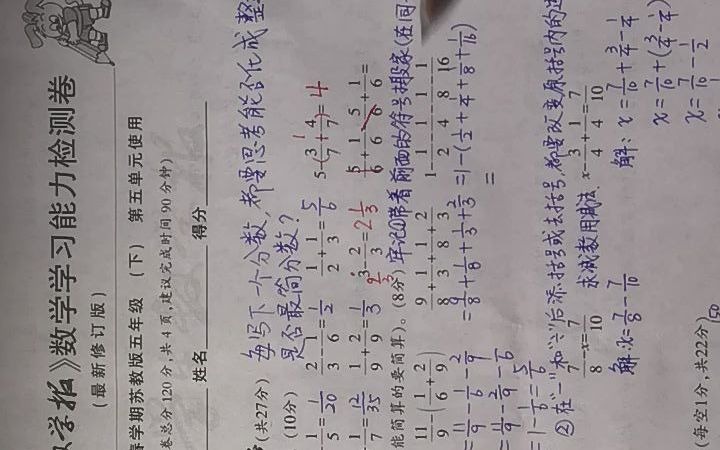 学报》数学学习能力检测卷
(最新修订版)
春学期苏教版五年级 (下) 第五单元使用
卷总分 120 分,共 4 页,建议完成时间 90 分钟)
姓名 得分
(共27分) 每写下一个分数,都要思考能否化成整
是否最简分数?
(10分)
1/5 = 1/20  2/3 - 1/6 = 1/2  1/2 + 1/3 = 5/6  5-(3/7+4/7)= 4
1/7 = 12/35  1/9 + 2/9 = 1/3  3 - 2/3 = 2 1/3
能简算的要简算)。(8分) 牢记①带着前面的符号搬家(在同
11/9-(1/6+2/9)  9/8+1/3+1/8+2/3  1-1/2-1/4-1/8-1/16
=11/9-1/6-2/9  =9/8+1/8+1/3+2/3  =1-(1/2+1/4+1/8+1/16)
=11/9-2/9-1/6  =
=1-1/6=5/6
②在"-"和"÷"后添括号或去括号,都要改变原括号内的
求减数用减法
7/8-x=7/10  x-3/4+1/4=7/10
解:x=7/8-7/10  解:x=7/10+3/4-1/4
x=7/10+(3/4-1/4)
x=7/10-1/2
(每空1分,共22分)